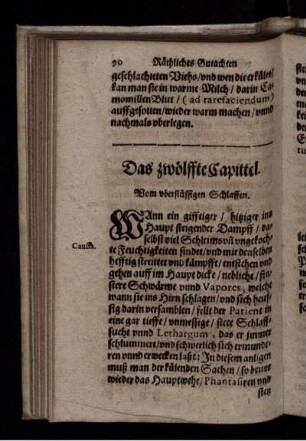 90 Räthliches Gutachten
geschlachteten Viehs/vnd wen die erkület/
kan man sie in warme Milch / darin Ca-
momillen Blut / (ad rarefaciendum)
auffgesotten/wieder warm machen / vnnd
nachmals vberlegen.
Das zwölffte Capittel.
Vom vberflüssigen Schlaffen.
WAnn ein gifftiger / hitziger ins
Haupt steigender Dampff / da-
selbst viel Schleims vñ vngekoch-
te Feuchtigkeiten findet / vnd mit denselben
hefftig streitet vnd kämpfft/ entstehen vnd
gehen auff im Haupt dicke / neblichte / fin-
stere Schwärme vnnd Vapores, welche
wann sie ins Hirn schlagen / vnd sich heuf-
fig darin versamblen / fellt der Patient in
eine gar tieffe / vnmessige / stete Schlaff-
sucht vnnd Lethargum, das er jmmer
schlummert/vnd schwerlich sich ermunde-
ren vnnd erwecken laßt: In diesem anligen
muß man der külenden Sachen / so hievor
wieder das Hauptwehe / Phantasiren vnd
Causa.